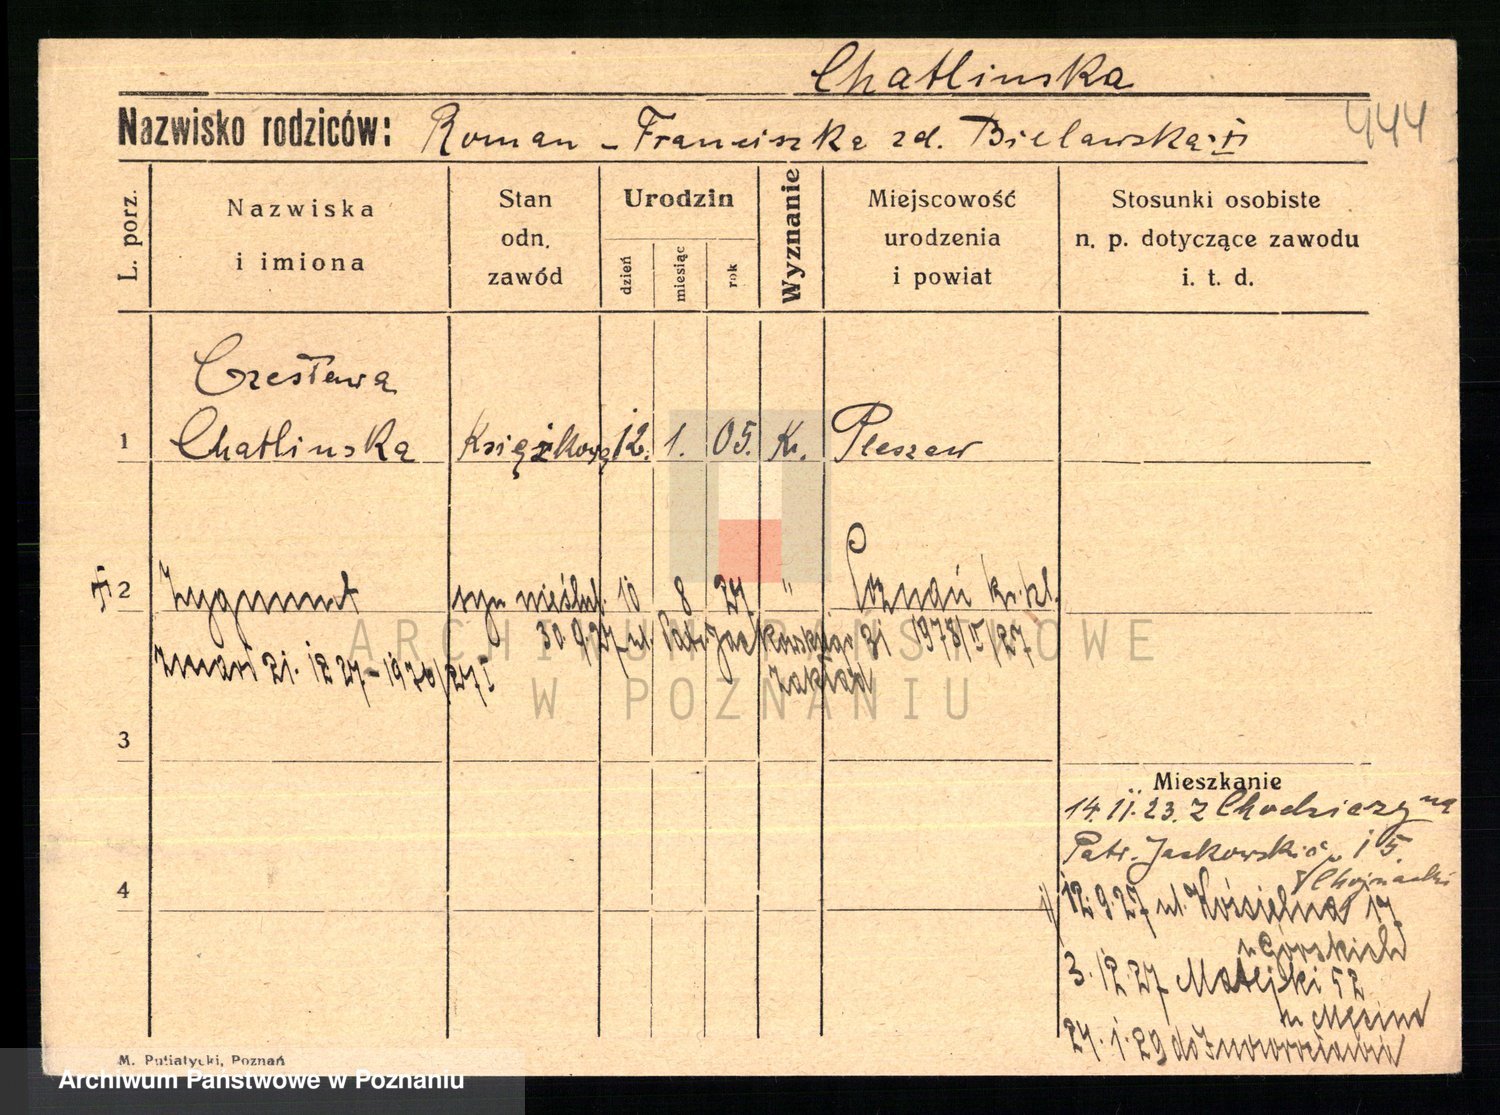 Chatlinska
444
Nazwisko rodziców: Roman - Franciszka zd. Bielawska
L. porz.
Nazwiska
i imiona
Stan
odn.
zawód
Urodzin
dzień
miesiąc
rok
Wyznanie
Miejscowość
urodzenia
i powiat
Stosunki osobiste
n. p. dotyczące zawodu
i. t. d.
Czesława
1 Chatlinska Książkową 12. 1. 05. K. Pleszew
2 Zygmunt syn nieślub. 10 8 27 " Poznań
30.9.27 ul. Patr. Jackowskiego 31 1978/II/27
zmarł 21. 12 27 - Zakład
3
Mieszkanie
14.II.23. z Chodzieży na
Patr. Jackowskiego 15.
Chojnacki
4
12.9.27 ul. Kościelna 17
u Górskich
3.12.27 Matejki 52
u
24.1.29 do Inowrocławia
M. Putiatycki, Poznań
ARCHIWUM PAŃSTWOWE
W POZNANIU
Archiwum Państwowe w Poznaniu